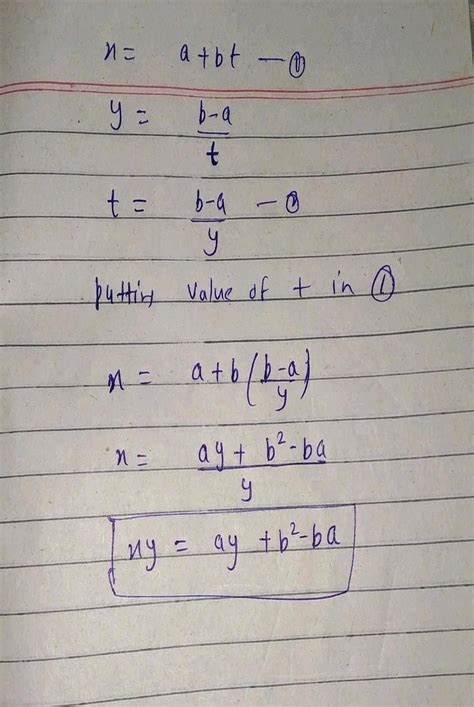 x = a+bt — ①
y = b-a/t
t = b-a/y — ②
putting value of t in ①
x = a+b(b-a/y)
x = ay + b²-ba/y
xy = ay +b²-ba